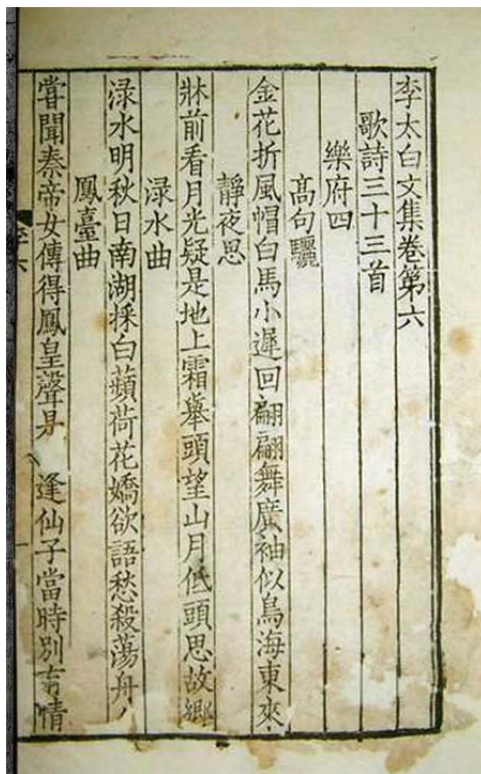 李太白文集卷第六
歌詩三十三首
樂府四
髙句驪
金花折風帽白馬小遲回翩翩舞廣袖似鳥海東來
靜夜思
牀前看月光疑是地上霜舉頭望山月低頭思故鄉
淥水曲
淥水明秋日南湖採白蘋荷花嬌欲語愁殺蕩舟
鳳臺曲
甞聞秦帝女傳得鳳皇聲逢仙子當時別有情